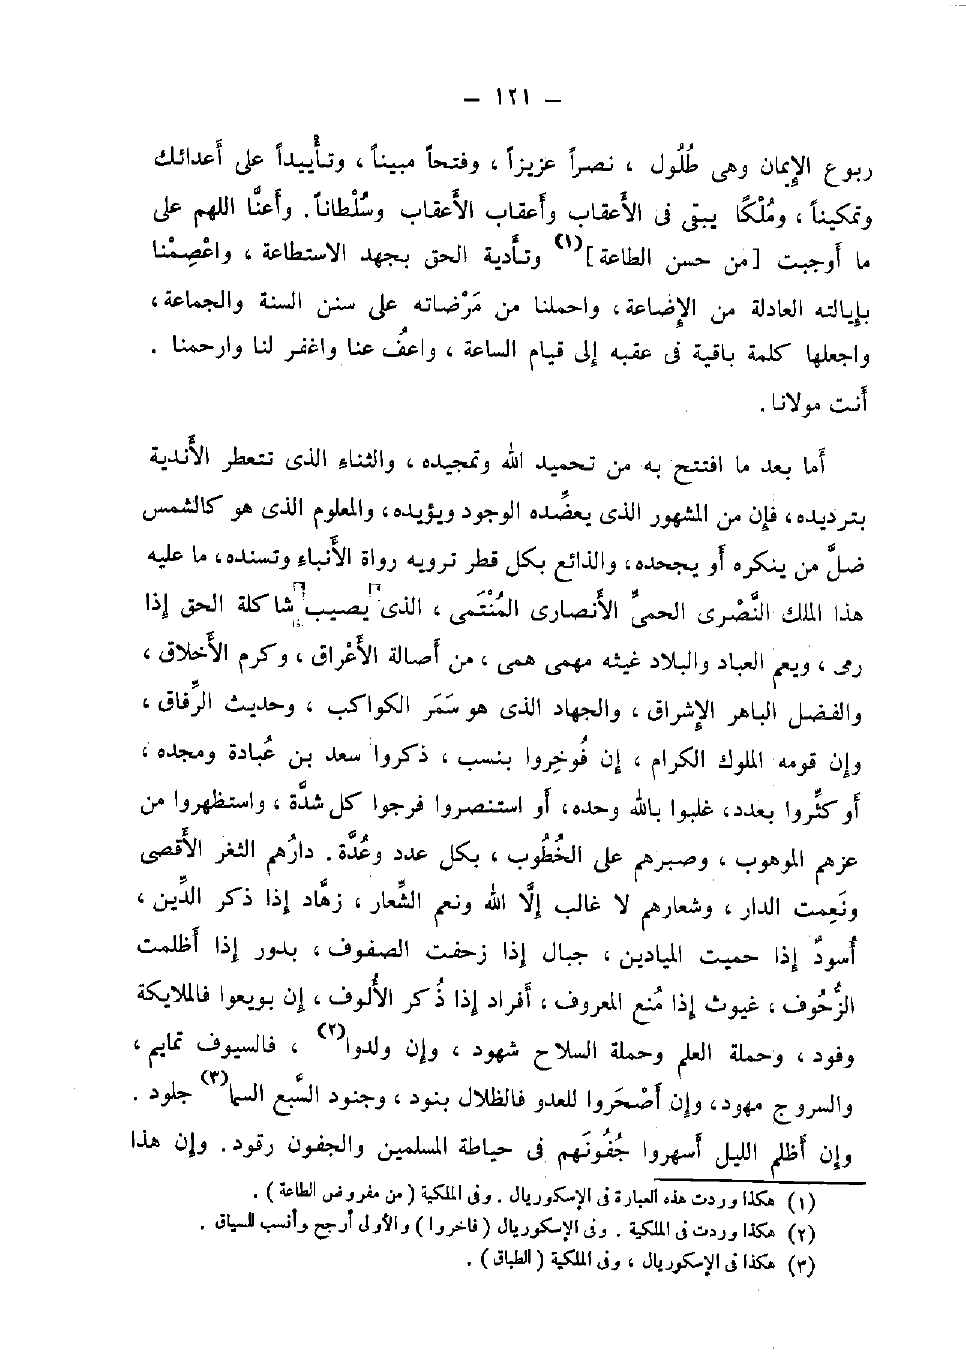 — ١٢١ —
ربوع الإيمان وهى طُلُول ، نصراً عزيزاً ، وفتحاً مبيناً ، وتأييداً على أعدائك
وتمكيناً ، ومُلْكًا يبقى فى الأعقاب وأعقاب الأعقاب وسُلْطاناً . وأعنَّا اللهم على
ما أوجبت [من حسن الطاعة](١) وتأدية الحق بجهد الاستطاعة ، واعْصِمْنا
بإيالته العادلة من الإضاعة ، واحملنا من مَرْضاته على سنن السنة والجماعة ،
واجعلها كلمة باقية فى عقبه إلى قيام الساعة ، واعفُ عنا واغفر لنا وارحمنا .
أنت مولانا .
أما بعد ما افتتح به من تحميد الله وتمجيده ، والثناء الذى تتعطر الأندية
بترديده ، فإن من المشهور الذى يعضِّده الوجود ويؤيده ، والمعلوم الذى هو كالشمس
ضلَّ من ينكره أو يجحده ، والذائع بكل قطر ترويه رواة الأنباء وتسنده ، ما عليه
هذا الملك النَّصْرى الحمىُّ الأنصارى المُنْتَمى ، الذى يصيب شاكلة الحق إذا
رمى ، ويعم العباد والبلاد غيثه مهمى همى ، من أصالة الأعْراق ، وكرم الأخلاق ،
والفضل الباهر الإشراق ، والجهاد الذى هو سَمَر الكواكب ، وحديث الرِّفاق ،
وإن قومه الملوك الكرام ، إن فُوخِروا بنسب ، ذكروا سعد بن عُبادة ومجده ،
أو كثِّروا بعدد ، غلبوا بالله وحده ، أو استنصروا فرجوا كل شدَّة ، واستظهروا من
عزهم الموهوب ، وصبرهم على الخُطُوب ، بكل عدد وعُدَّة . دارُهم الثغر الأقصى
ونَعِمت الدار ، وشعارهم لا غالب إلَّا الله ونعم الشِّعار ، زهَّاد إذا ذكر الدِّين ،
أُسودٌ إذا حميت الميادين ، جبال إذا زحفت الصفوف ، بدور إذا أظلمت
الزُّحُوف ، غيوث إذا مُنع المعروف ، أفراد إذا ذُكر الأُلوف ، إن بويعوا فالملايكة
وفود ، وحملة العلم وحملة السلاح شهود ، وإن ولدوا(٢) ، فالسيوف تمايم ،
والسروج مهود ، وإن أصْحَروا للعدو فالظلال بنود ، وجنود السَّبع السما(٣) جلود .
وإن أظلم الليل أسهروا جُفُونَهم فى حياطة المسلمين والجفون رقود . وإن هذا
(١) هكذا وردت هذه العبارة فى الإسكوريال . وفى الملكية ( من مفروض الطاعة ) .
(٢) هكذا وردت فى الملكية . وفى الإسكوريال ( فاخروا ) والأولى أرجح وأنسب للسياق .
(٣) هكذا فى الإسكوريال ، وفى الملكية ( الطباق ) .